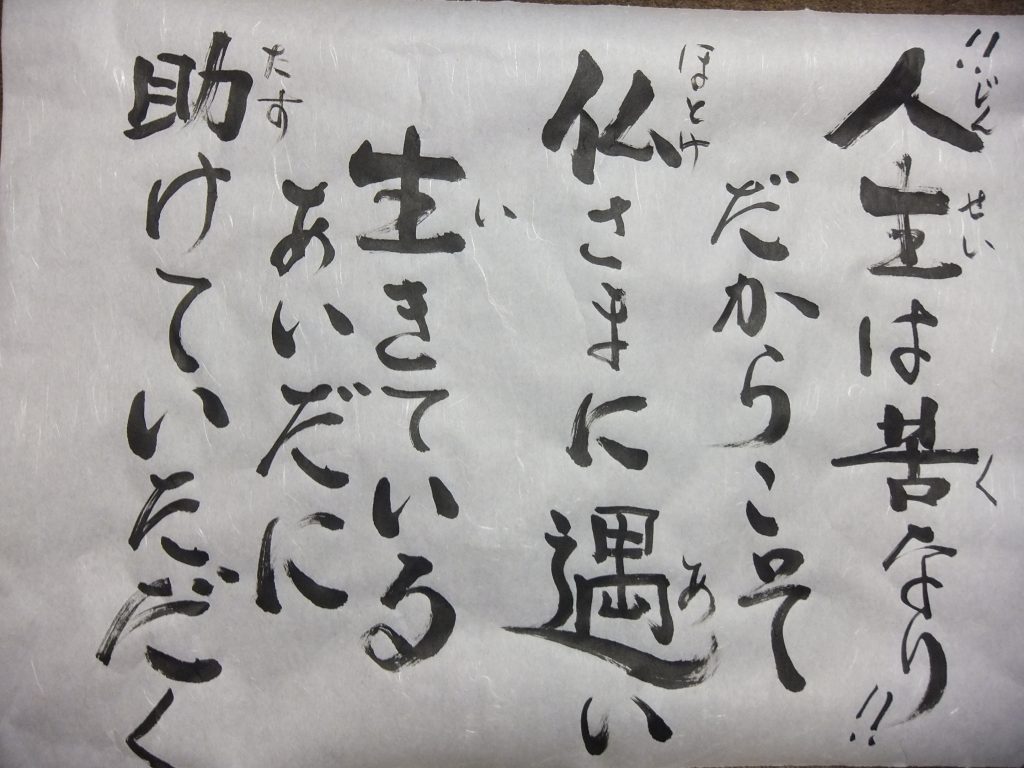 〝人生は苦なり〟
だからこそ
仏さまに遇い
生きている
あいだに
助けていただく
じん
せい
く
ほとけ
あ
い
たす